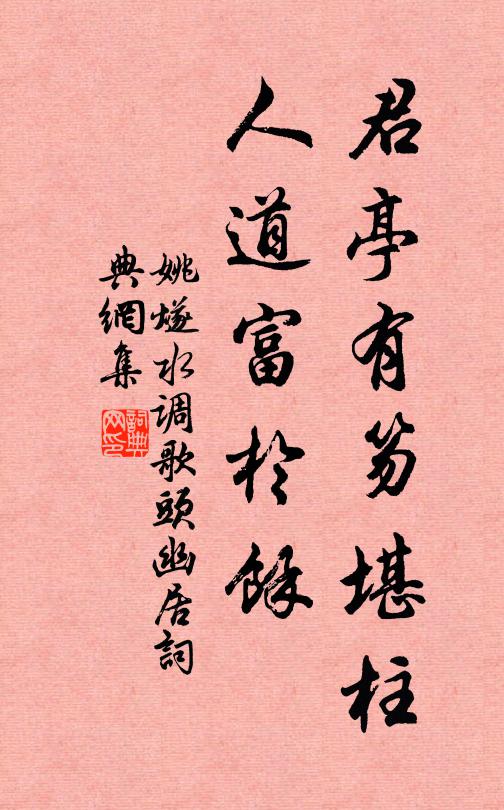 君亭有笏堪柱
人道富於餘
姚燧水调歌頭幽居詞
典網集
詞典網印